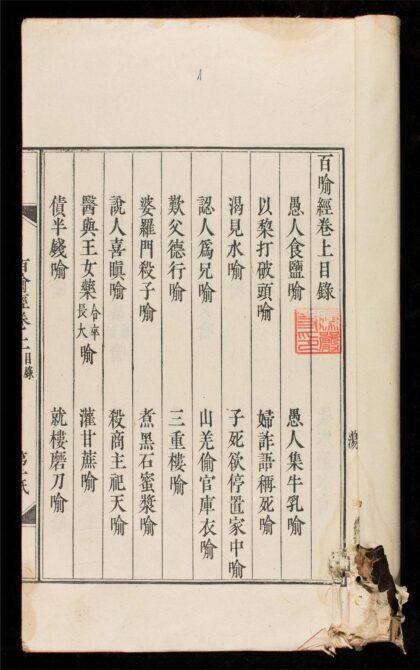 1
百喻經卷上目錄
愚人食鹽喻 愚人集牛乳喻
以棃打破頭喻 婦詐語稱死喻
渴見水喻 子死欲停置家中喻
認人爲兄喻 山羌偷官庫衣喻
歎父德行喻 三重樓喻
婆羅門殺子喻 煮黑石蜜漿喻
說人喜瞋喻 殺商主祀天喻
醫與王女藥令卒長大喻 灌甘蔗喻
債半錢喻 就樓磨刀喻
百喻經卷上目錄 第一紙